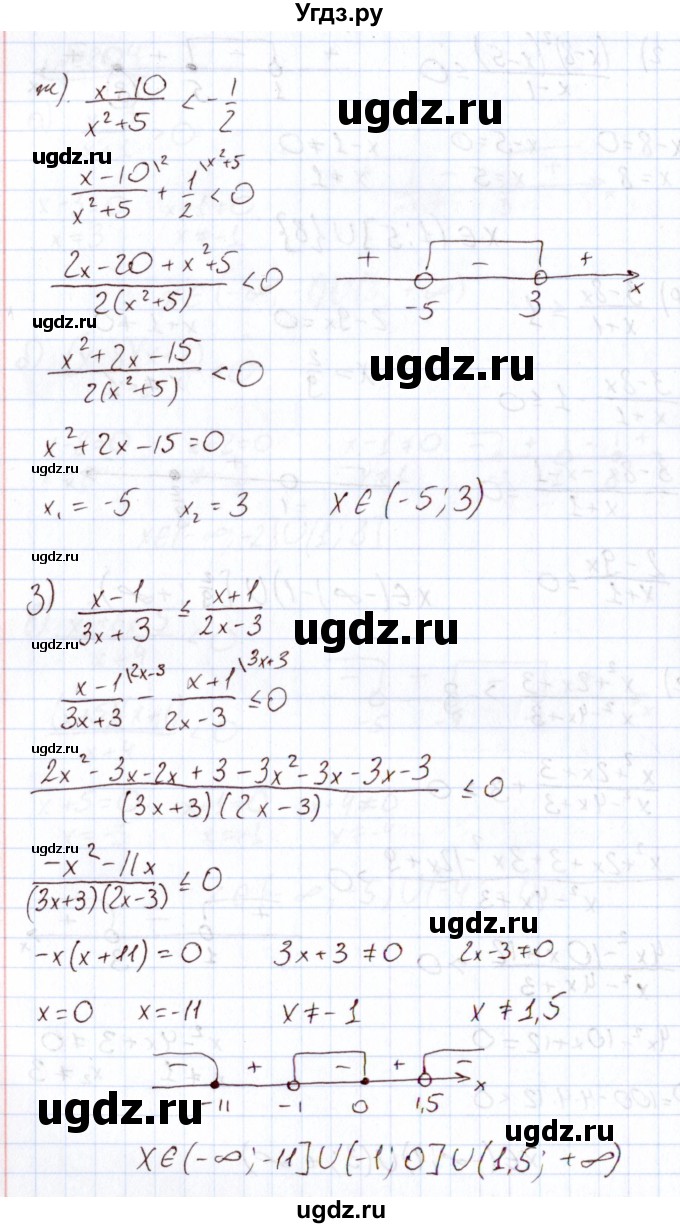 Угдз.ру
ж) (x-10)/(x²+5) < -1/2
ugdz.ru
ugdz.ru
(x-10)\² / (x²+5) + 1\ˣ²⁺⁵ / 2 < 0
(2x-20+x²+5)/(2(x²+5)) < 0
+ - + x
-5 3
ugdz.ru
(x²+2x-15)/(2(x²+5)) < 0
ugdz.ru
x²+2x-15=0
ugdz.ru
x₁ = -5 x₂ = 3 x∈(-5; 3)
ugdz.ru
з) (x-1)/(3x+3) ≤ (x+1)/(2x-3)
ugdz.ru
ugdz.ru
(x-1)\2x-3 / (3x+3) - (x+1)\3x+3 / (2x-3) ≤ 0
ugdz.ru
(2x²-3x-2x+3-3x²-3x-3x-3)/((3x+3)(2x-3)) ≤ 0
ugdz.ru
(-x²-11x)/((3x+3)(2x-3)) ≤ 0
ugdz.ru
-x(x+11)=0 3x+3≠0 2x-3≠0
x=0 x=-11 x≠-1 x≠1,5
- + - + - x
-11 -1 0 1,5
ugdz.ru
ugdz.ru
x∈(-∞; -11]∪(-1; 0]∪(1,5; +∞)
ugdz.ru